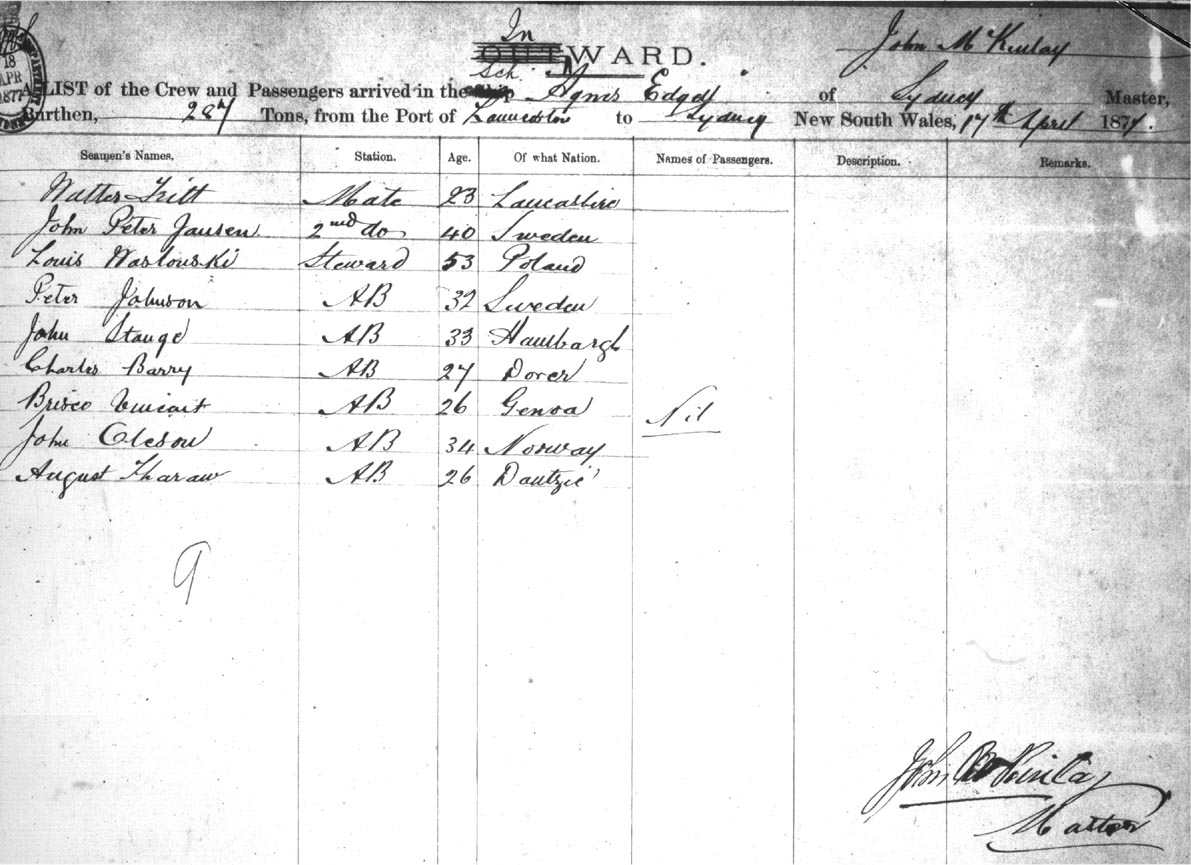 In
OUTWARD.
John McKinlay
18
APR
1877
A LIST of the Crew and Passengers arrived in the Ship Sch. Agnes Edgell of Sydney Master,
Burthen, 287 Tons, from the Port of Launceston to Sydney New South Wales, 17th April 1877.
Seamen's Names. Station. Age. Of what Nation. Names of Passengers. Description. Remarks.
Walter Mate 23 Lancashire
John Peter Jansen 2nd do 40 Sweden
Louis Steward 53 Poland
Peter Johnson AB 32 Sweden
John Stange AB 33 Hambargh
Charles Barry AB 27 Dover
Brisco AB 26 Genoa Nil
John Oleson AB 34 Norway
August Tharaw AB 26 Dantzic
9
John McKinlay
Master